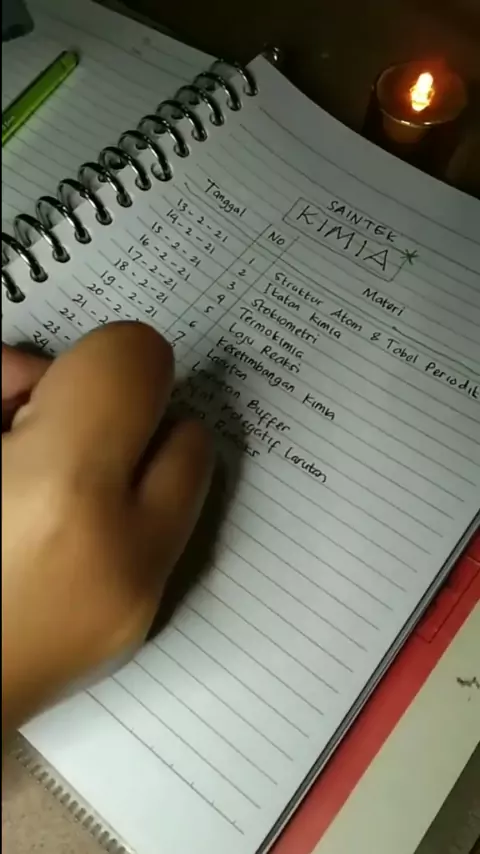 SAINTEK
KIMIA
Tanggal No Materi
13-2-21 1 Struktur Atom & Tabel Periodik
14-2-21 2 Ikatan Kimia
15-2-21 3 Stokiometri
16-2-21 4 Termokimia
17-2-21 5 Laju Reaksi
18-2-21 6 Kesetimbangan Kimia
19-2-21 7 Larutan
20-2- Buffer
21-2 Koligatif Larutan
22-
23-
24